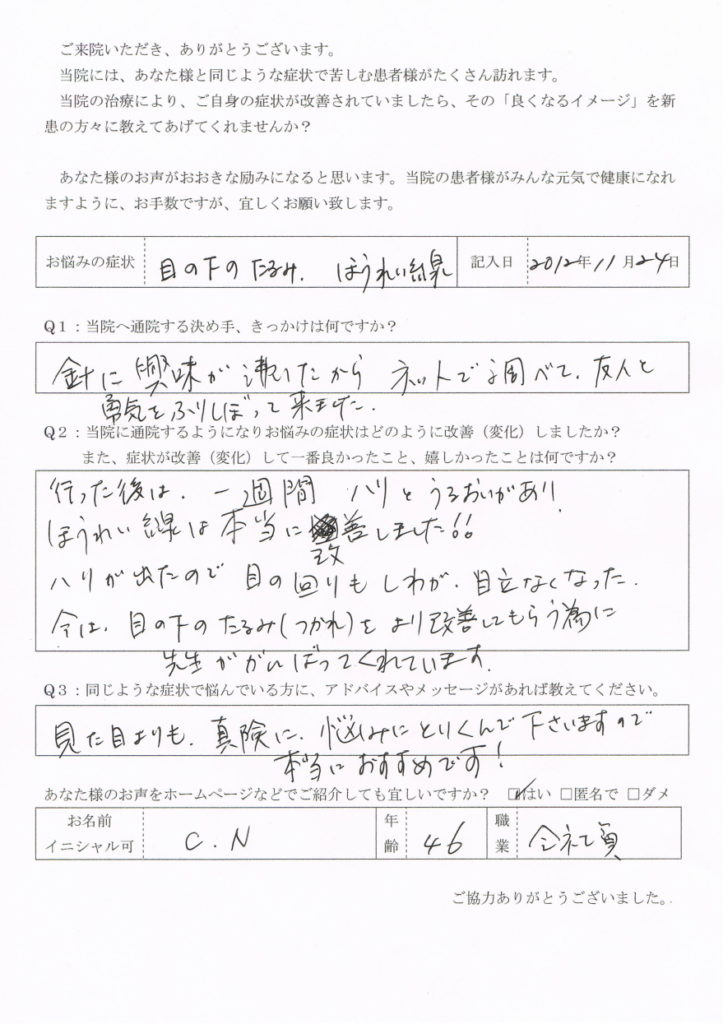 ご来院いただき、ありがとうございます。
当院には、あなた様と同じような症状で苦しむ患者様がたくさん訪れます。
当院の治療により、ご自身の症状が改善されていましたら、その「良くなるイメージ」を新
患の方々に教えてあげてくれませんか？
あなた様のお声がおおきな励みになると思います。当院の患者様がみんな元気で健康になれ
ますように、お手数ですが、宜しくお願い致します。
お悩みの症状 目の下のたるみ、ほうれい線 記入日 2012年11月24日
Q1：当院へ通院する決め手、きっかけは何ですか？
針に興味が沸いたから ネットで調べて、友人と
勇気をふりしぼって来ました。
Q2：当院に通院するようになりお悩みの症状はどのように改善（変化）しましたか？
また、症状が改善（変化）して一番良かったこと、嬉しかったことは何ですか？
行った後は、一週間 ハリとうるおいがあり！
ほうれい線は本当に改善しました!!
ハリが出たので 目の回りもしわが、目立なくなった。
今は、目の下のたるみ(つかれ)をより改善してもらう為に
先生ががんばってくれています。
Q3：同じような症状で悩んでいる方に、アドバイスやメッセージがあれば教えてください。
見た目よりも、真険に、悩みにとりくんで下さいますので
本当におすすめです！
あなた様のお声をホームページなどでご紹介しても宜しいですか？ ☑はい □匿名で □ダメ
お名前 イニシャル可 C.N 年齢 46 職業 会社員
ご協力ありがとうございました。